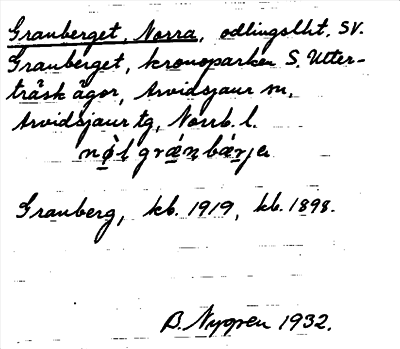 Granberget, Norra, odlingslht. SV.
Granberget, kronoparken S. Utter-
träsk ägor, Arvidsjaur sn,
Arvidsjaur tg, Norrb. l.
Granberg, kb. 1919, kb. 1898.
B. Nygren 1932.